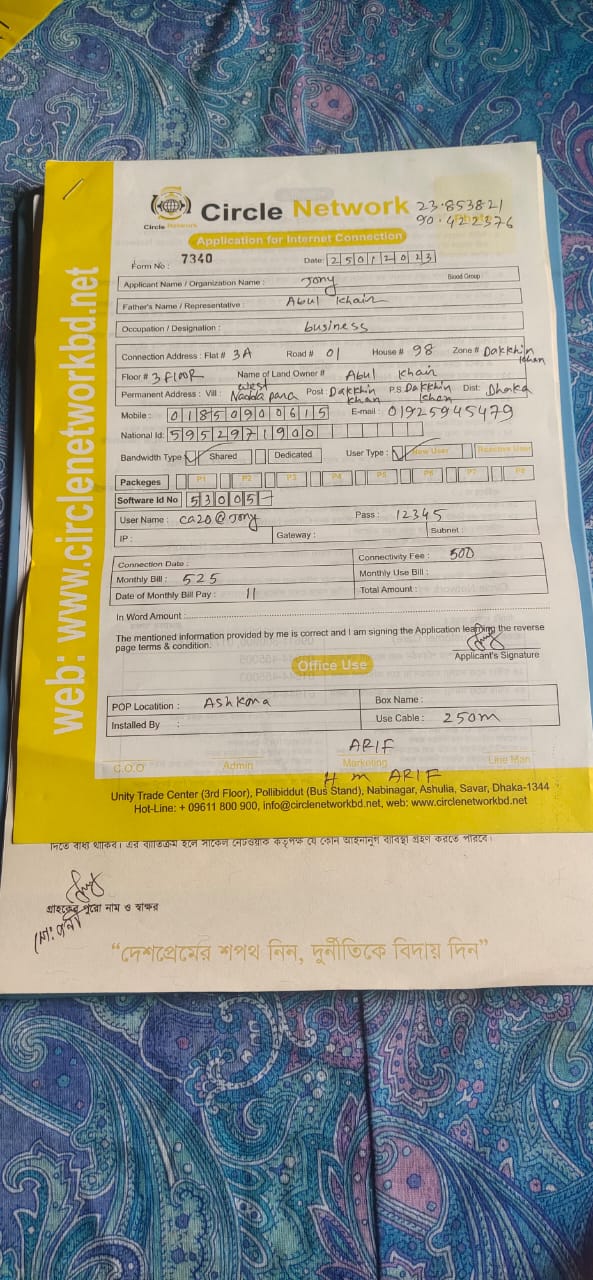 Circle Network
Circle Network
23.853821
90.422376
Application for Internet Connection
Form No : 7340
Date: 25012023
Applicant Name / Organization Name : Jony
Blood Group :
Father's Name / Representative : Abul Khair
Occupation / Designation : business
Connection Address : Flat # 3A Road # 01 House # 98 Zone # Dakkhin Khan
Floor # 3 FLOOR Name of Land Owner # Abul Khair
Permanent Address : Vill : West Nadda para Post: Dakkhin Khan P.S. Dakkhin Khan Dist: Dhaka
Mobile : 01850900615 E-mail : 01925945479
National Id: 5952971900
Bandwidth Type Shared Dedicated User Type : New User Reactive User
Packeges P1 P2 P3 P4 P5 P6 P7 P8
Software Id No 53005
User Name : ca20@Jony Pass : 12345
IP : Gateway : Subnet :
Connection Date : Connectivity Fee : 500
Monthly Bill : 525 Monthly Use Bill :
Date of Monthly Bill Pay : 11 Total Amount :
In Word Amount :
The mentioned information provided by me is correct and I am signing the Application learning the reverse
page terms & condition.
Applicant's Signature
Office Use
POP Locatition : Ashkona Box Name :
Installed By : Use Cable : 250m
ARIF
C.O.O Admin Marketing Line Man
H m ARIF
Unity Trade Center (3rd Floor), Pollibiddut (Bus Stand), Nabinagar, Ashulia, Savar, Dhaka-1344
Hot-Line: + 09611 800 900, info@circlenetworkbd.net, web: www.circlenetworkbd.net
web: www.circlenetworkbd.net
গ্রাহকের পুরো নাম ও স্বাক্ষর
“দেশপ্রেমের শপথ নিন, দুর্নীতিকে বিদায় দিন”